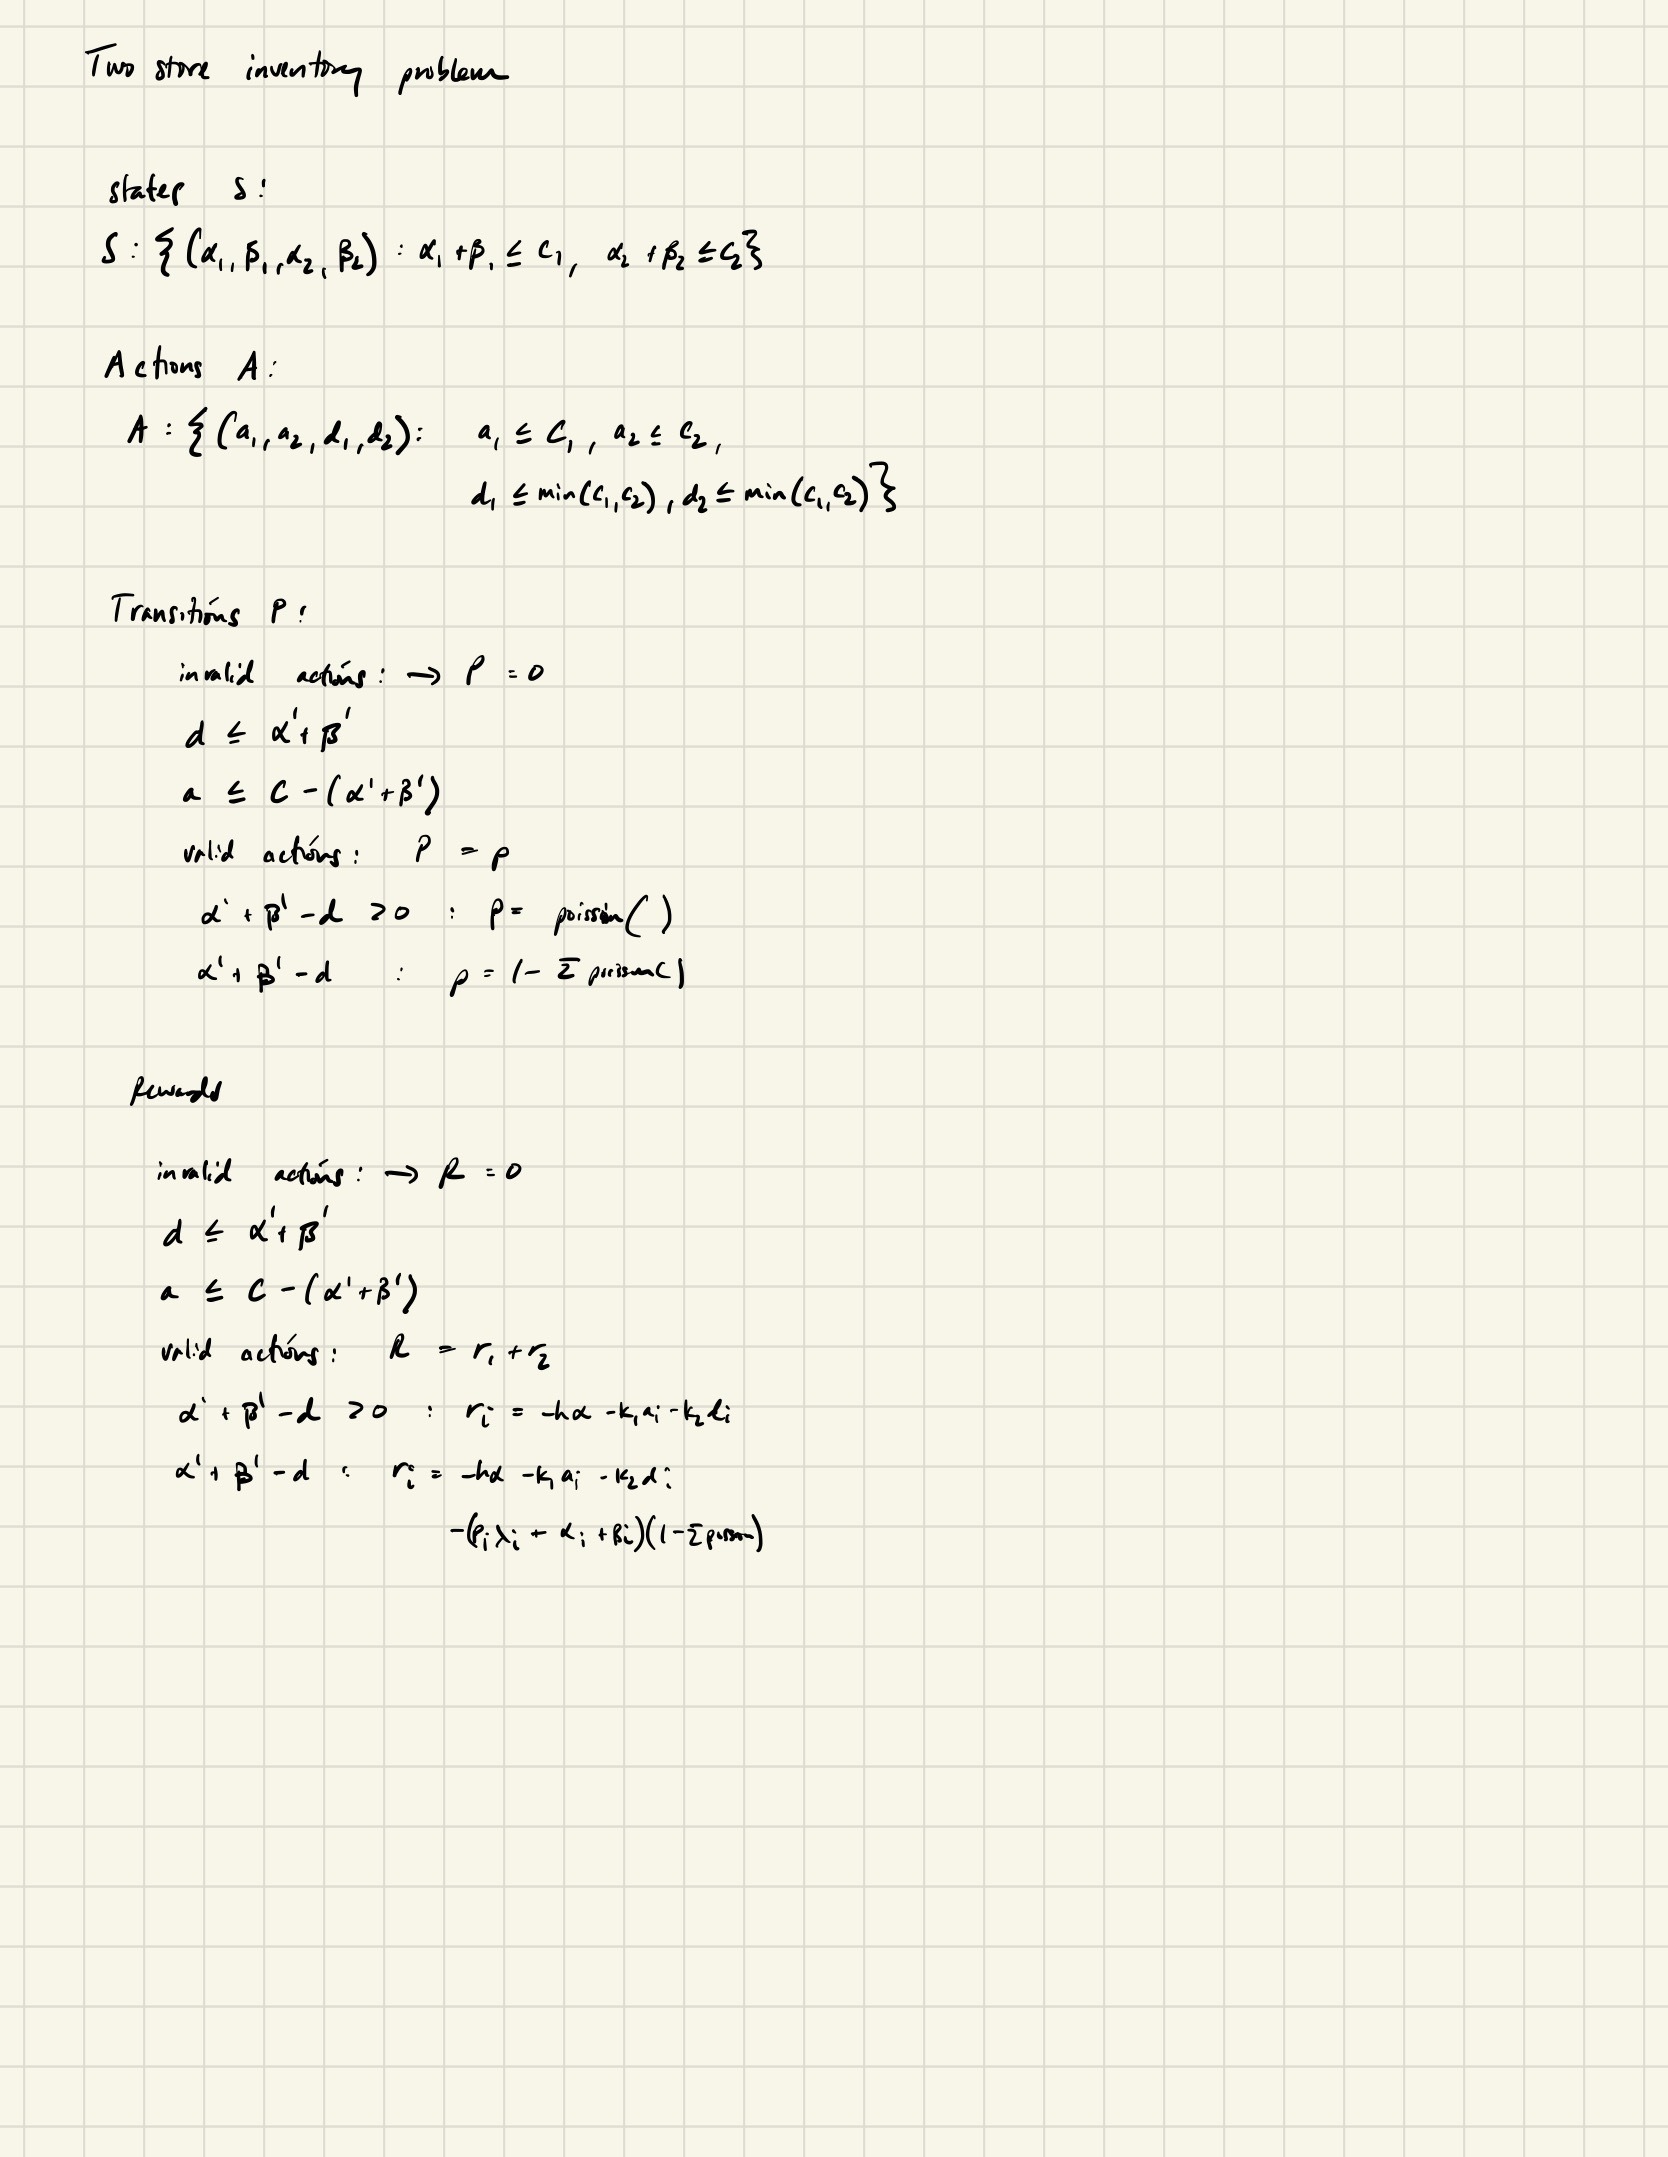 Two store inventory problem
states S:
S: {(α₁, β₁, α₂, β₂) : α₁ + β₁ ≤ C₁, α₂ + β₂ ≤ C₂}
Actions A:
A : {(a₁, a₂, d₁, d₂): a₁ ≤ C₁, a₂ ≤ C₂,
d₁ ≤ min(C₁, C₂), d₂ ≤ min(C₁, C₂)}
Transitions P:
invalid actions: → P = 0
d ≤ α' + β'
a ≤ C - (α' + β')
valid actions: P = p
α' + β' - d > 0 : p = poisson( )
α' + β' - d : p = 1 - Σ poisson( )
Rewards
invalid actions: → R = 0
d ≤ α' + β'
a ≤ C - (α' + β')
valid actions: R = r₁ + r₂
α' + β' - d > 0 : rᵢ = -hα - k₁aᵢ - k₂dᵢ
α' + β' - d : rᵢ = -hα - k₁aᵢ - k₂dᵢ
-(pᵢλᵢ + αᵢ + βᵢ)(1 - Σ poisson)